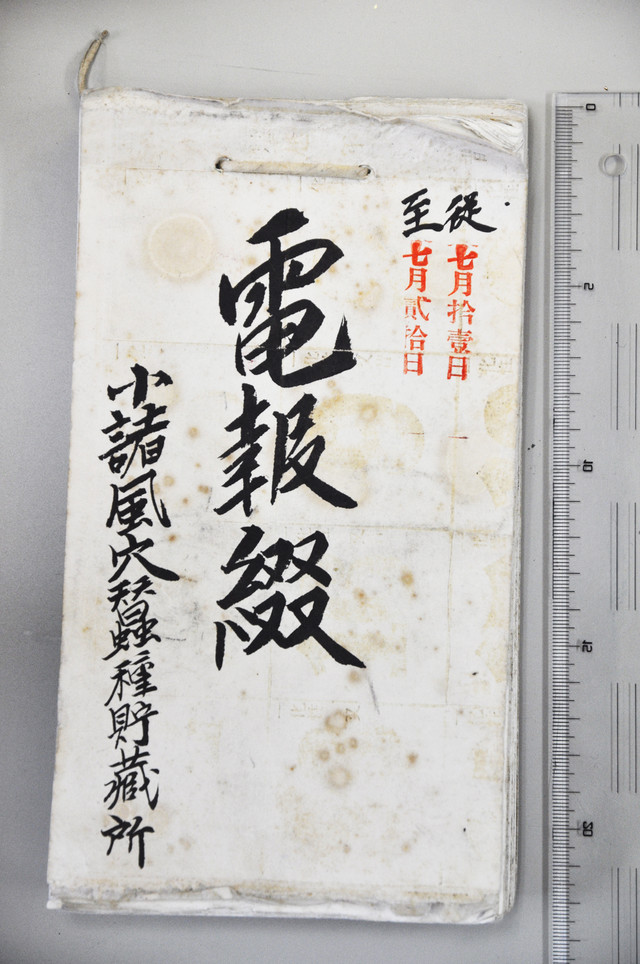 從 七月拾壹日
至 七月貳拾日
電報綴
小諸風穴蠶種貯藏所
0
5
10
15
20